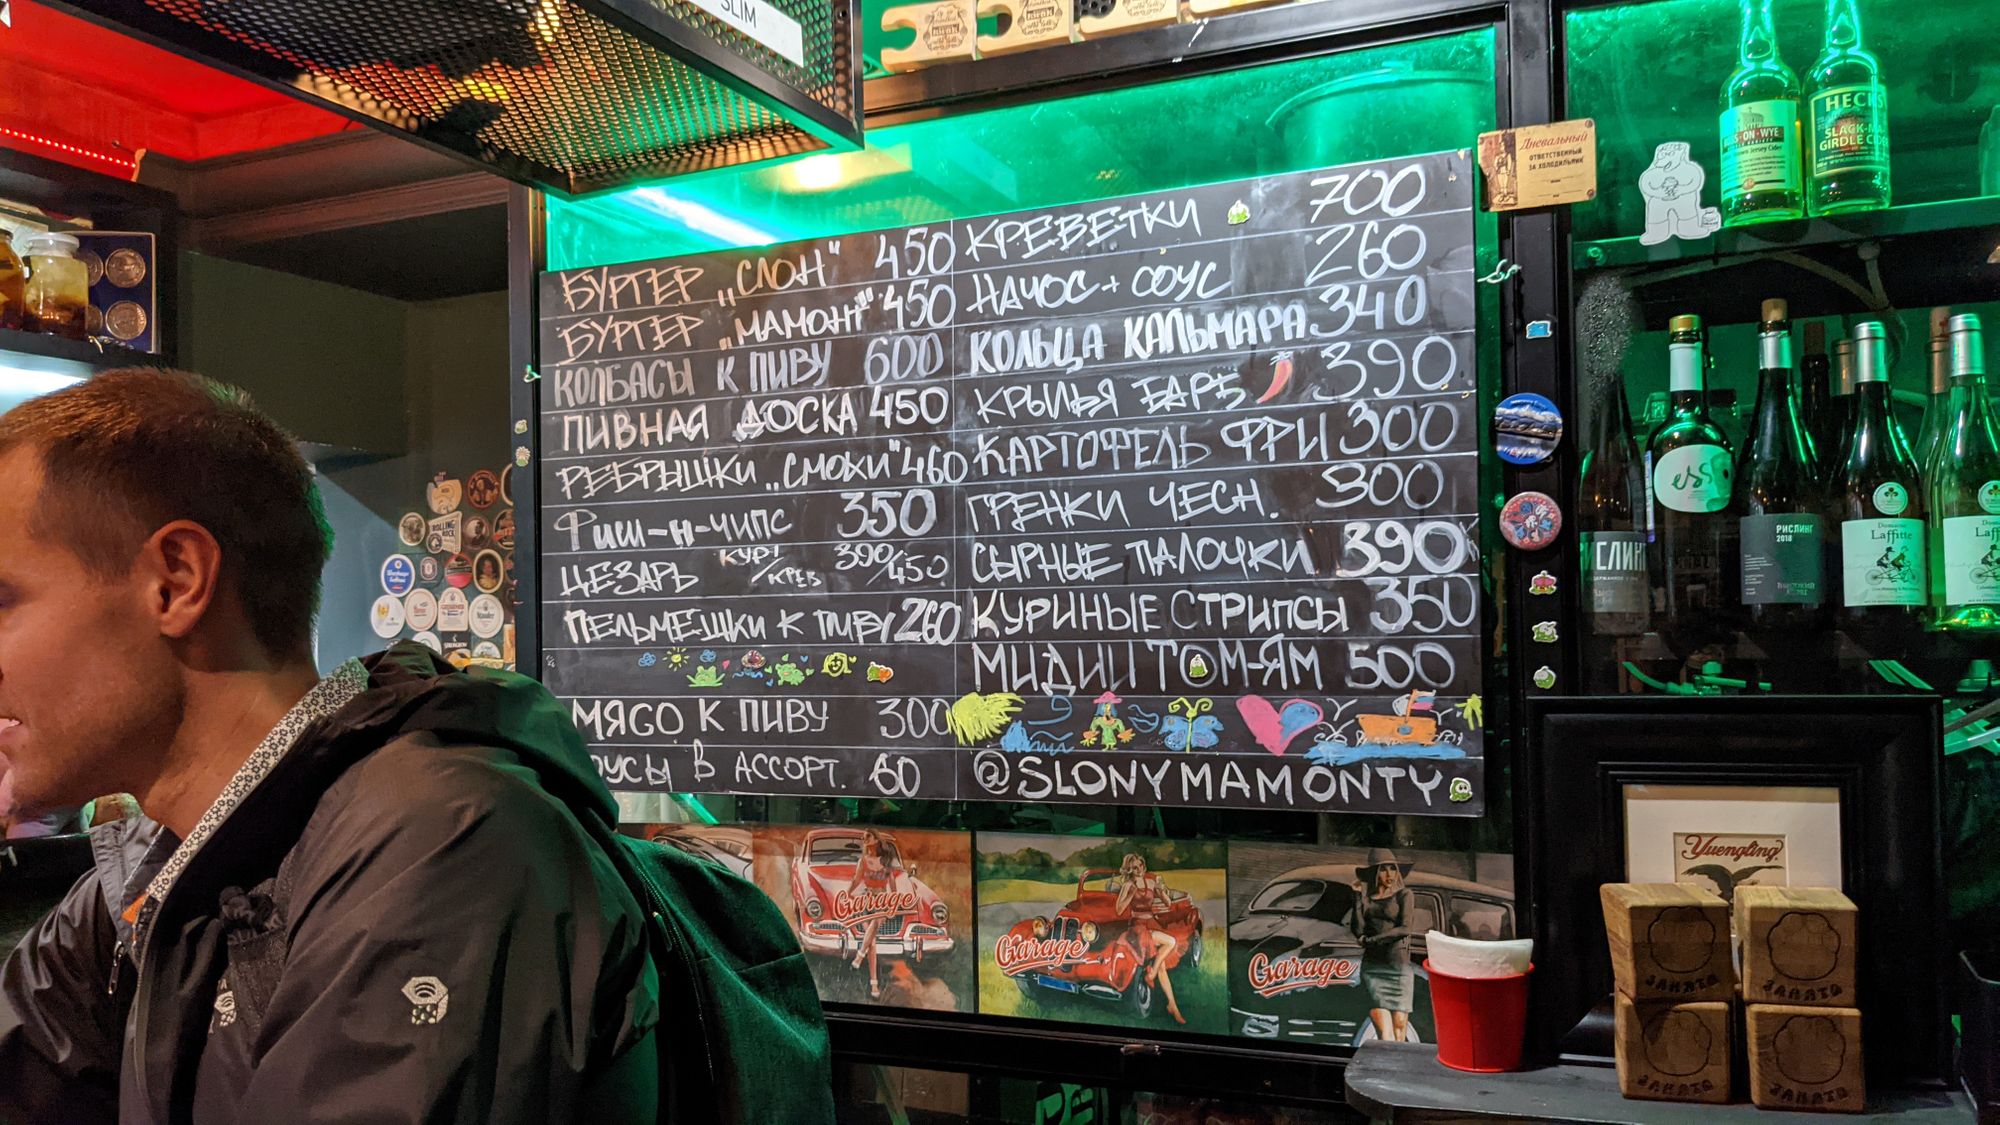 SLIM
БУРГЕР „СЛОН" 450
БУРГЕР „МАМОНТ" 450
КОЛБАСЫ К ПИВУ 600
ПИВНАЯ ДОСКА 450
РЕБРЫШКИ „СМОКИ" 460
ФИШ-Н-ЧИПС 350
ЦЕЗАРЬ КУР/КРЕВ 390/450
ПЕЛЬМЕШКИ К ПИВУ 260
МЯСО К ПИВУ 300
ОУСЫ В АССОРТ. 60
КРЕВЕТКИ 700
НАЧОС + СОУС 260
КОЛЬЦА КАЛЬМАРА 340
КРЫЛЬЯ БАРБ 390
КАРТОФЕЛЬ ФРИ 300
ГРЕНКИ ЧЕСН. 300
СЫРНЫЕ ПАЛОЧКИ 390
КУРИНЫЕ СТРИПСЫ 350
МИДИИ ТОМ-ЯМ 500
@SLONYMAMONTY
Дневальный
ОТВЕТСТВЕННЫЙ
ЗА ХОЛОДИЛЬНИК
-ON-WYE
HECKS
GIRDLE CIDER
ess
РИСЛИНГ
РИСЛИНГ
2018
Domaine
Laffitte
Laffitte
ROLLING
ROCK
Garage
Garage
Garage
Yuengling
ЗАНЯТО
ЗАНЯТО
ЗАНЯТО
ЗАНЯТО